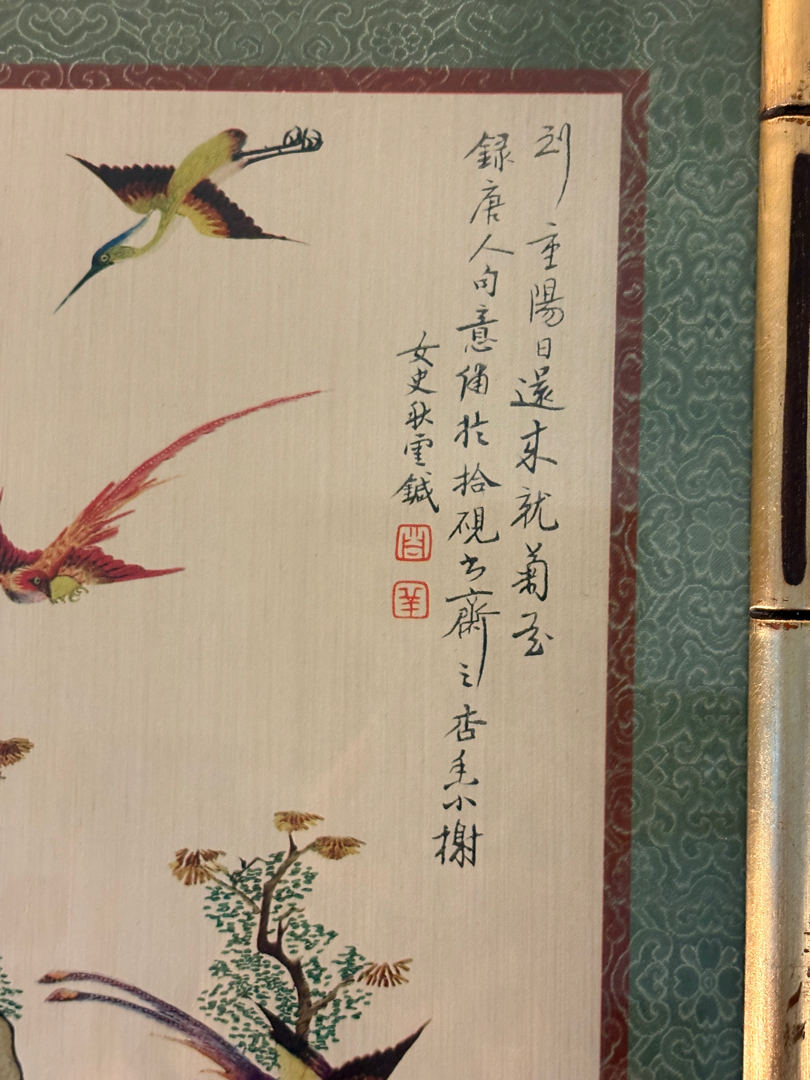 到重陽日還來就菊花
錄唐人句意備於拾硯書齋之杏香小榭
女史耿雲鍼